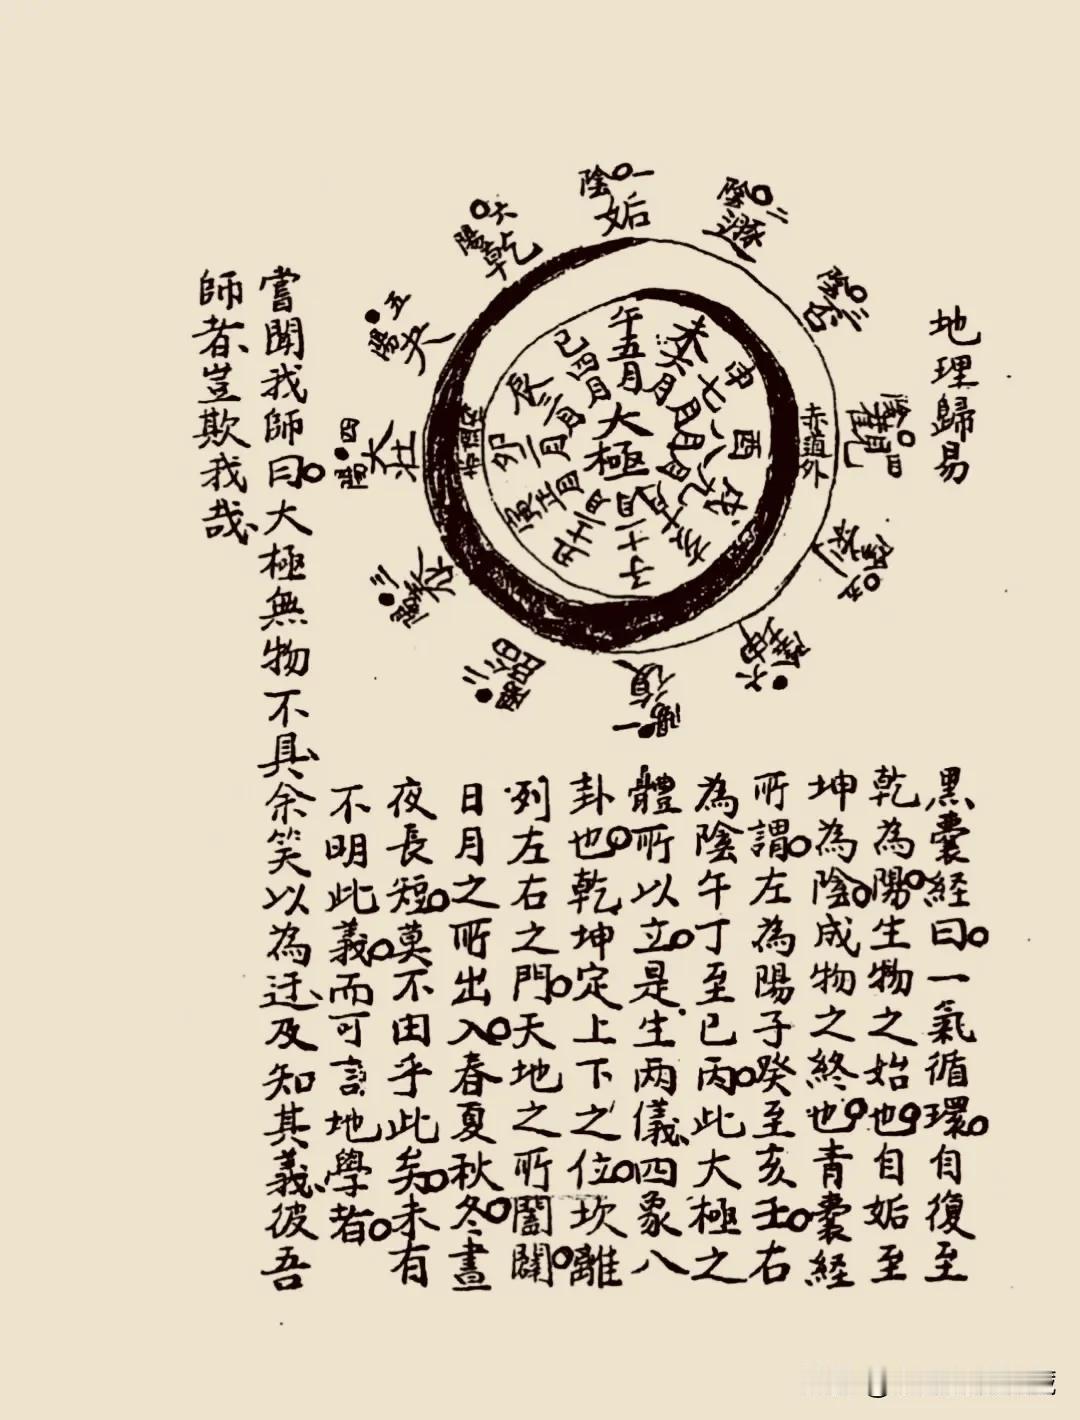 地理歸易
陰一
姤
陰二
遯
陰三
否
陰四
觀
陰五
剝
陰六
坤
陽一
復
陽二
臨
陽三
泰
陽四
大壯
陽五
夬
陽六
乾
赤道外
午五月
未六月
申七月
酉八月
戌九月
亥十月
子十一月
丑十二月
寅正月
卯二月
辰三月
巳四月
大極
黑囊経曰。一氣循環。自復至
乾為陽。生物之始也。自姤至
坤為陰。成物之終也。青囊経
所謂。左為陽子癸至亥壬。右
為陰午丁至巳丙。此大極之
體所以立。是生兩儀、四象八
卦也。乾坤定上下之位。坎離
列左右之門。天地之所闔闢。
日月之所出入。春夏秋冬。晝
夜長短。莫不由乎此矣。未有
不明此義。而可言地學者。
嘗聞我師曰。大極無物不具、余笑以為迂、及知其義、彼吾
師者、豈欺我哉、